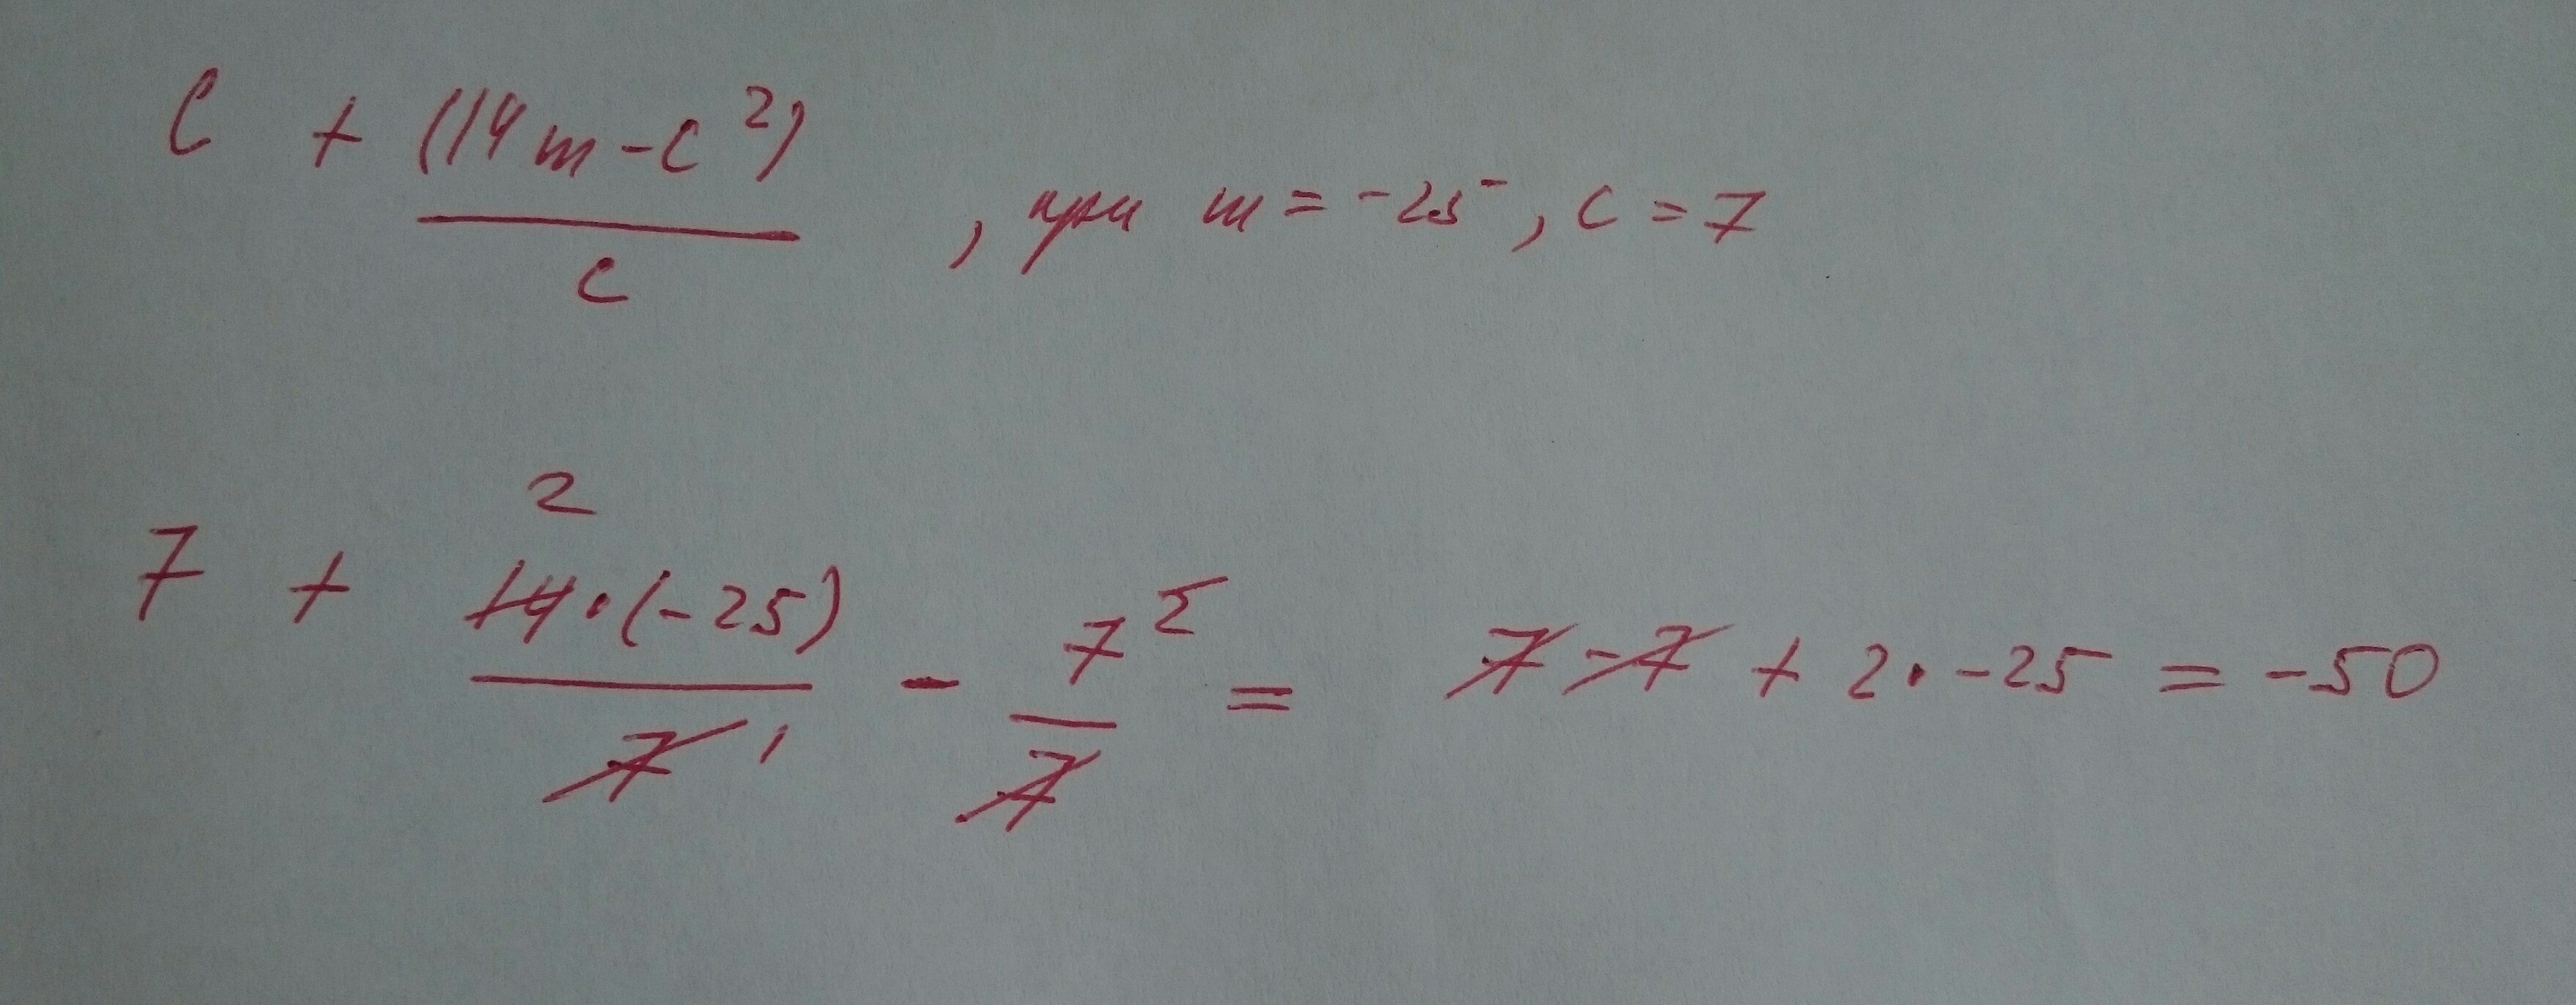 c + (14m - c²) / c , при m = -25, c = 7
7 + 14 · (-25) / 7 - 7² / 7 = 7 - 7 + 2 · -25 = -50
2
1